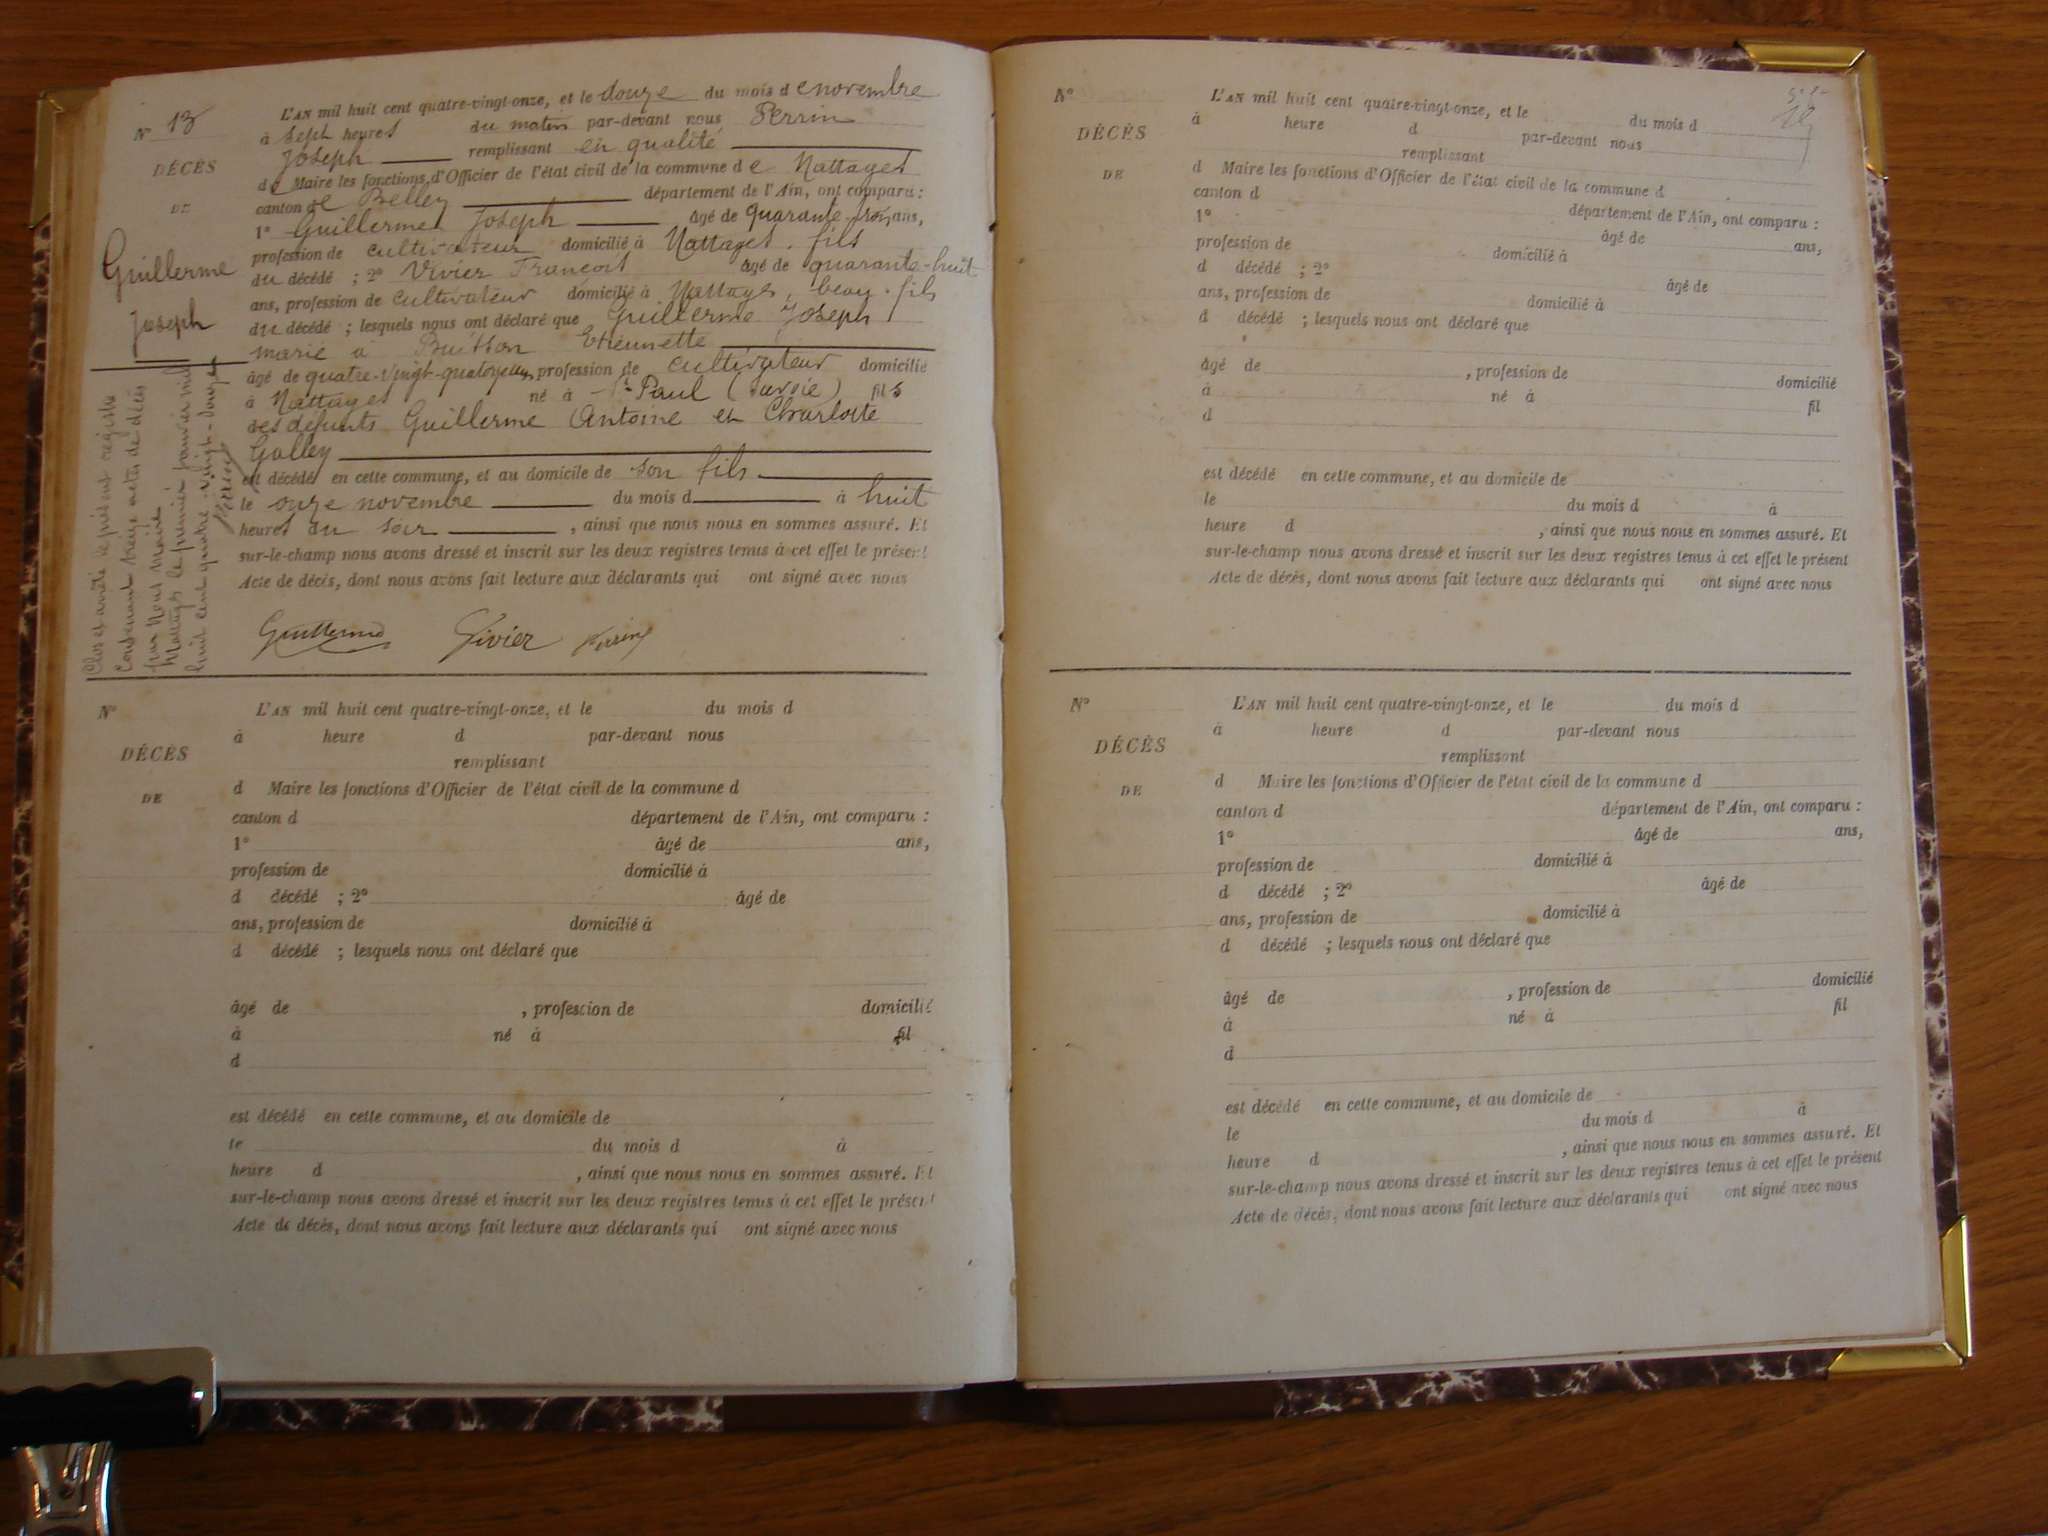 N° 13
DÉCÈS
DE
Guillerme
Joseph
L'AN mil huit cent quatre-vingt-onze, et le douze du mois de novembre
à sept heures du matin par-devant nous Perrin
Joseph remplissant en qualité
de Maire les fonctions d'Officier de l'état civil de la commune de Nattages
canton de Belley département de l'Ain, ont comparu :
1° Guillerme Joseph âgé de quarante-trois ans,
profession de cultivateur domicilié à Nattages, fils
du décédé ; 2° Vivier François âgé de quarante-huit
ans, profession de cultivateur domicilié à Nattages, beau-fils
du décédé ; lesquels nous ont déclaré que Guillerme Joseph
marié à Buisson Etiennette
âgé de quatre-vingt-quatorze ans, profession de cultivateur domicilié
à Nattages né à St Paul (Savoie) fils
des défunts Guillerme Antoine et Charlotte
Golley
est décédé en cette commune, et au domicile de son fils
le onze novembre du mois d à huit
heures du soir , ainsi que nous nous en sommes assuré. Et
sur-le-champ nous avons dressé et inscrit sur les deux registres tenus à cet effet le présent
Acte de décès, dont nous avons fait lecture aux déclarants qui ont signé avec nous
Guillerme Vivier Perrin
Clos et arrêté le présent registre
contenant treize actes de décès
par Nous maire
Nattages le premier janvier mil
huit cent quatre-vingt-douze
Perrin
N° L'AN mil huit cent quatre-vingt-onze, et le du mois d
DÉCÈS
DE
à heure d par-devant nous
remplissant
d Maire les fonctions d'Officier de l'état civil de la commune d
canton d département de l'Ain, ont comparu :
1° âgé de ans,
profession de domicilié à
d décédé ; 2° âgé de
ans, profession de domicilié à
d décédé ; lesquels nous ont déclaré que
âgé de , profession de domicilié
à né à fil
d
est décédé en cette commune, et au domicile de
le du mois d à
heure d , ainsi que nous nous en sommes assuré. Et
sur-le-champ nous avons dressé et inscrit sur les deux registres tenus à cet effet le présent
Acte de décès, dont nous avons fait lecture aux déclarants qui ont signé avec nous
N° L'AN mil huit cent quatre-vingt-onze, et le du mois d
DÉCÈS
DE
à heure d par-devant nous
remplissant
d Maire les fonctions d'Officier de l'état civil de la commune d
canton d département de l'Ain, ont comparu :
1° âgé de ans,
profession de domicilié à
d décédé ; 2° âgé de
ans, profession de domicilié à
d décédé ; lesquels nous ont déclaré que
âgé de , profession de domicilié
à né à fil
d
est décédé en cette commune, et au domicile de
le du mois d à
heure d , ainsi que nous nous en sommes assuré. Et
sur-le-champ nous avons dressé et inscrit sur les deux registres tenus à cet effet le présent
Acte de décès, dont nous avons fait lecture aux déclarants qui ont signé avec nous
N° L'AN mil huit cent quatre-vingt-onze, et le du mois d
DÉCÈS
DE
à heure d par-devant nous
remplissant
d Maire les fonctions d'Officier de l'état civil de la commune d
canton d département de l'Ain, ont comparu :
1° âgé de ans,
profession de domicilié à
d décédé ; 2° âgé de
ans, profession de domicilié à
d décédé ; lesquels nous ont déclaré que
âgé de , profession de domicilié
à né à fil
d
est décédé en cette commune, et au domicile de
le du mois d à
heure d , ainsi que nous nous en sommes assuré. Et
sur-le-champ nous avons dressé et inscrit sur les deux registres tenus à cet effet le présent
Acte de décès, dont nous avons fait lecture aux déclarants qui ont signé avec nous